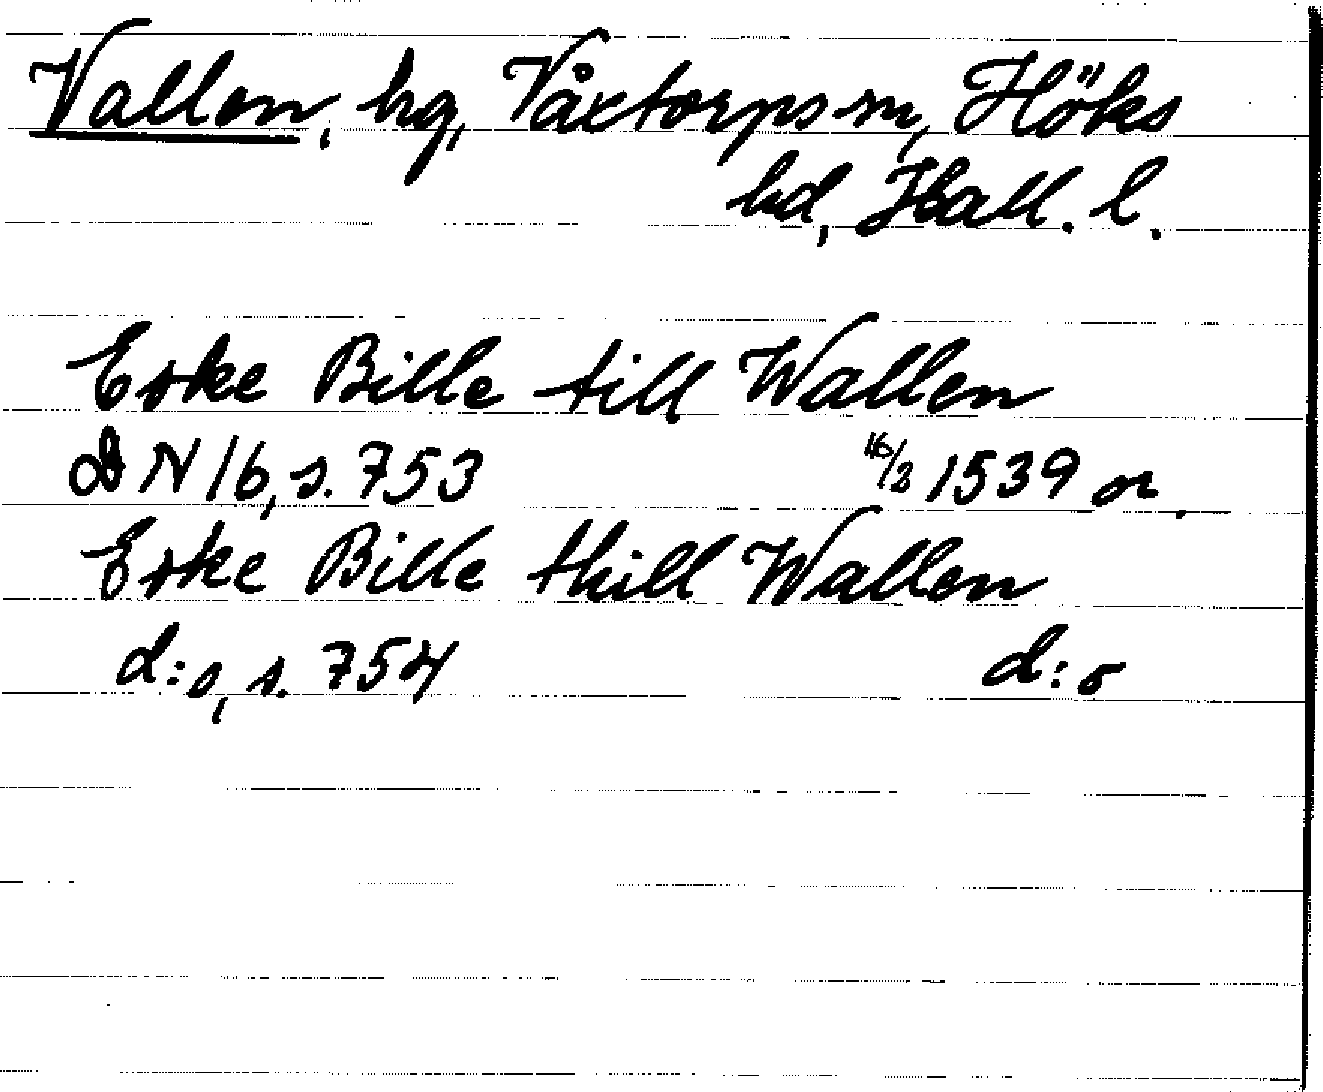 Vallen, hg, Våxtorps sn, Höks
hd, Hall. l.
Eske Bille till Wallen
DN 16, s. 753 16/2 1539 or.
Eske Bille thill Wallen
d:o, s. 754 d:o